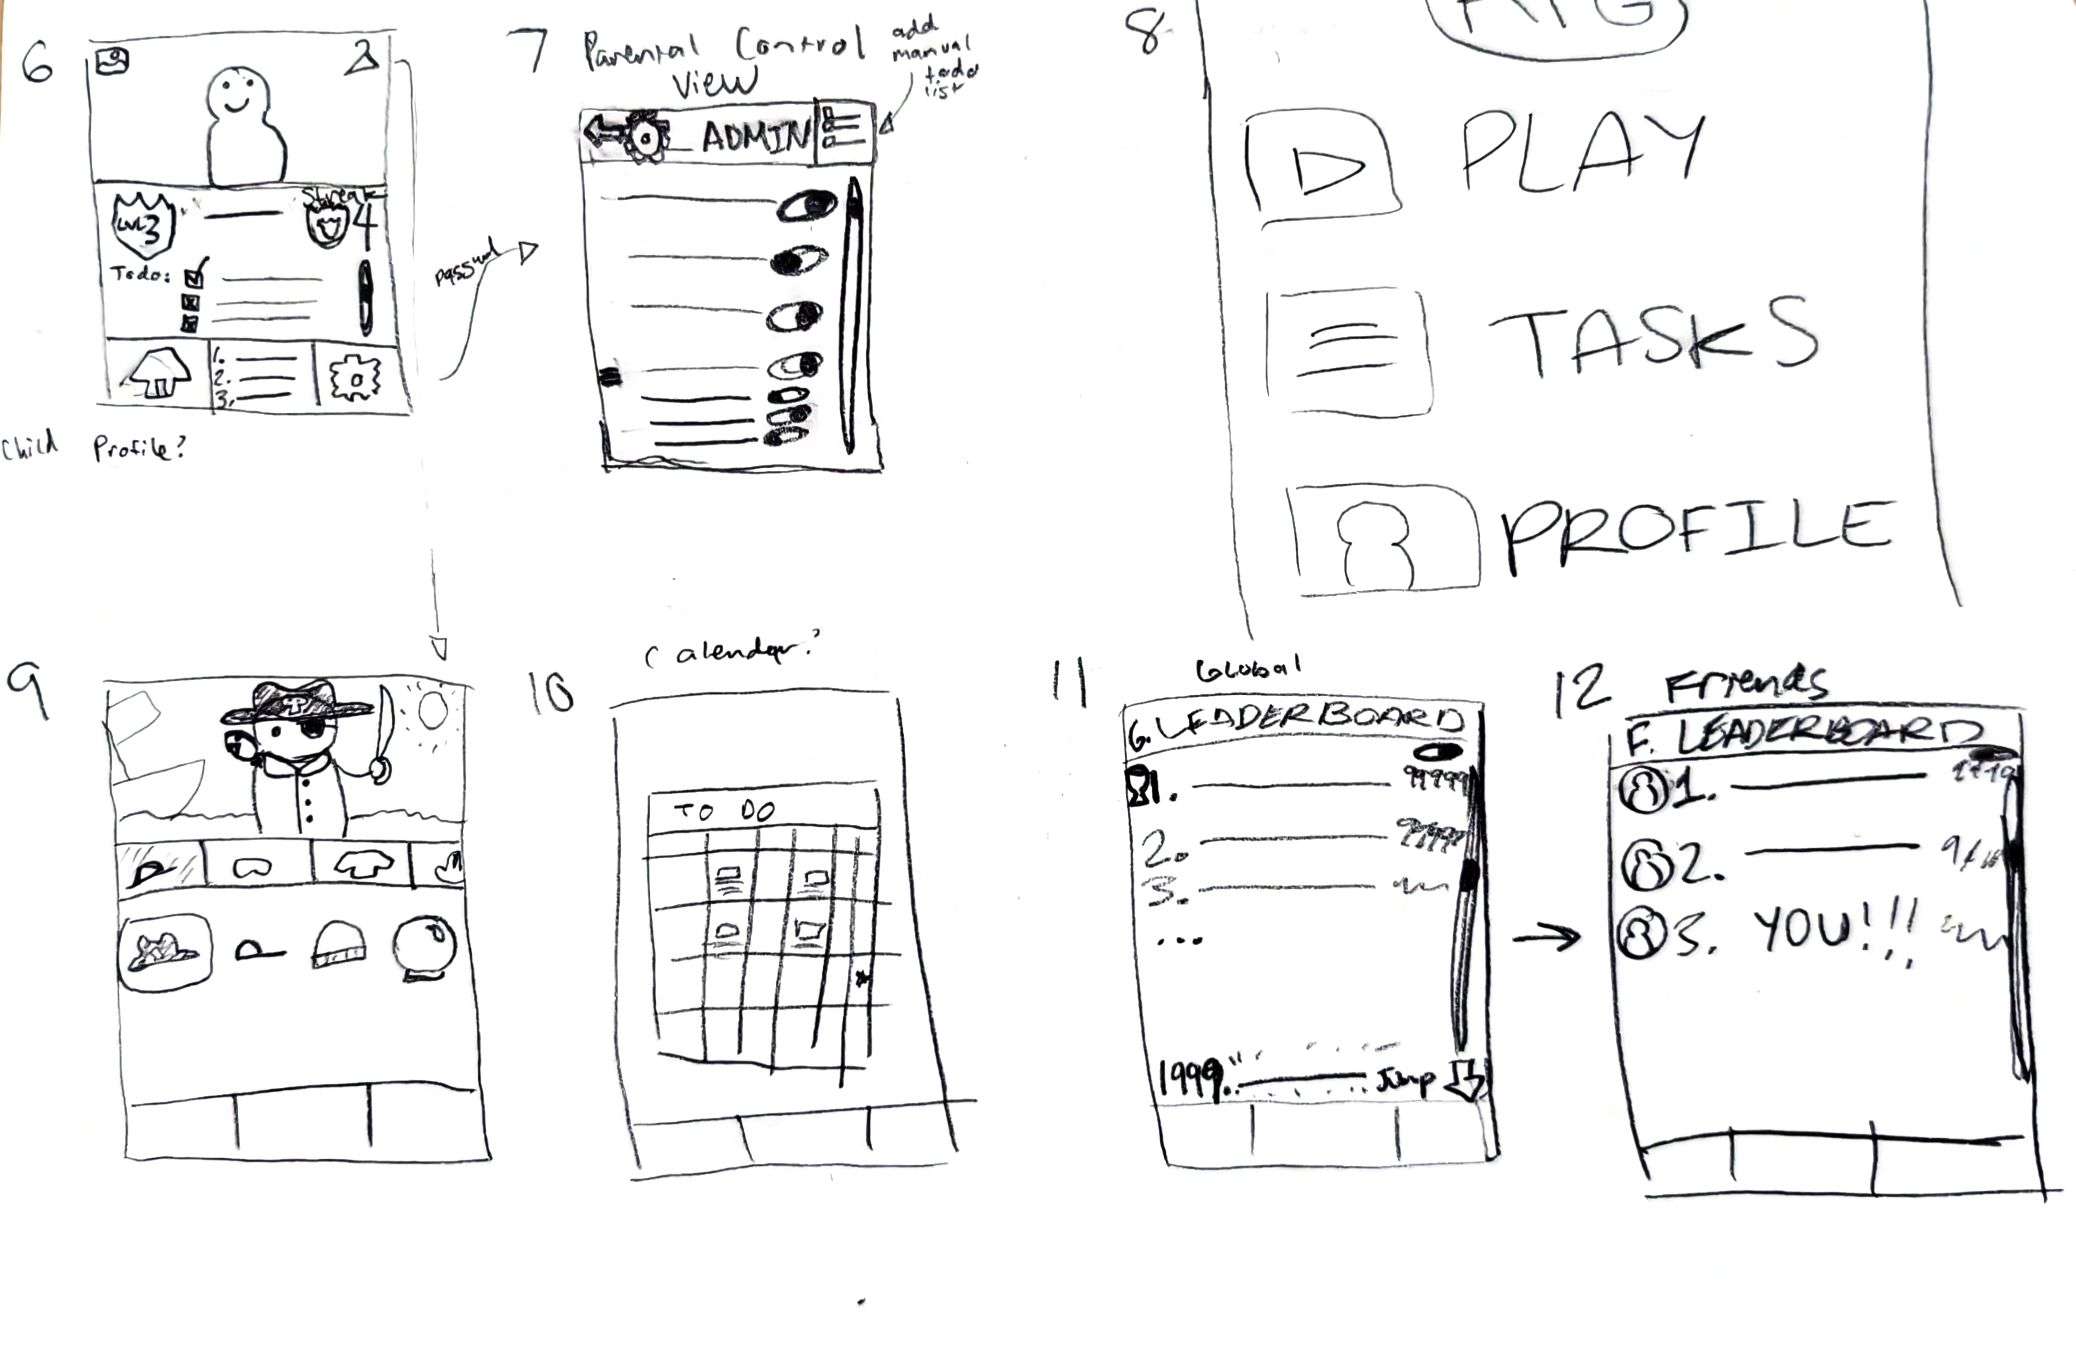 6
LVL3
Streak
4
Todo:
1.
2.
3.
Child Profile?
7
Parental Control
View
add
manual
todo
list
ADMIN
8
PLAY
TASKS
PROFILE
9
10
Calendar?
TO DO
11
Global
G. LEADERBOARD
1. 99999
2.
3.
...
1999. Jump
12
Friends
F. LEADERBOARD
1.
2.
3. YOU!!!